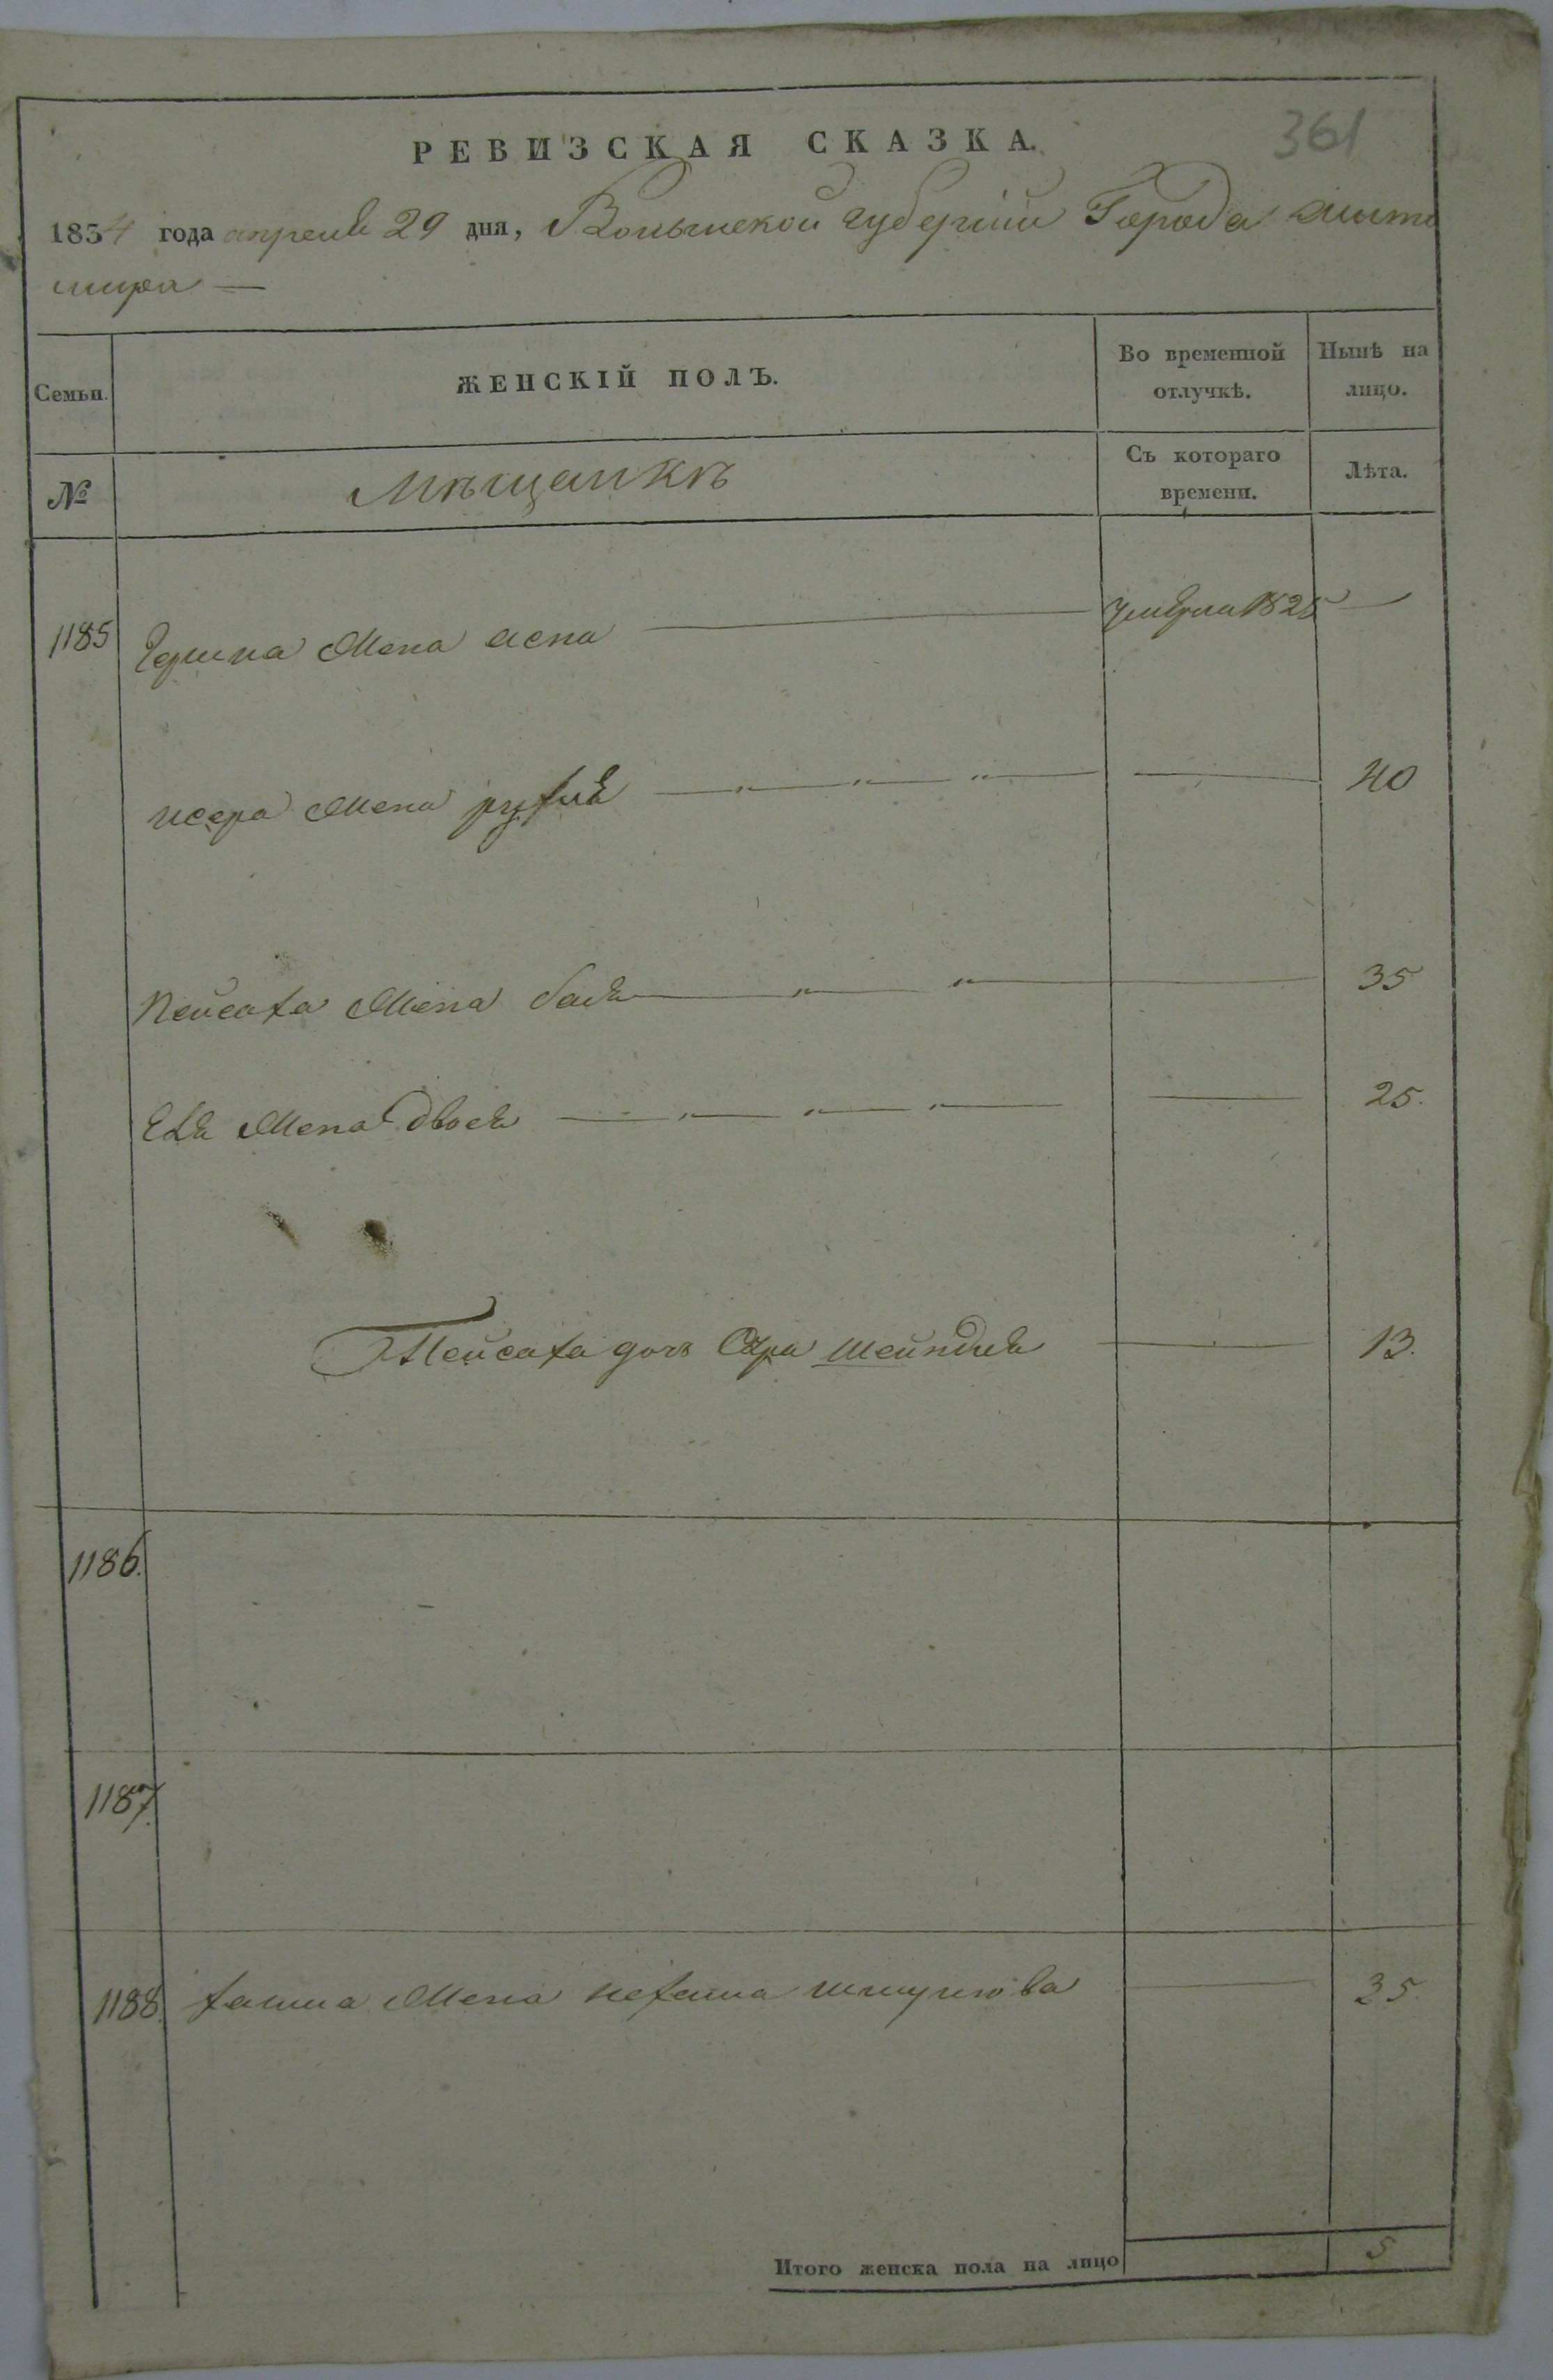 361
РЕВИЗСКАЯ СКАЗКА.
1834 года апреля 29 дня, Волынской губернии Города Жито
мира —
Семьи.
ЖЕНСКІЙ ПОЛЪ.
Во временной отлучкѣ.
Нынѣ на лицо.
№
Мѣщанкѣ
Съ котораго времени.
Лѣта.
1185 Гершка Жена аспа умерла 1825 —
исера Жена рухля — 40
Пейсаха Жена бася — 35
Жена двося — 25.
Пейсаха дочь Сура Шейндля — 13.
1186.
1187.
1188. Жена 35
Итого женска пола на лицо 5